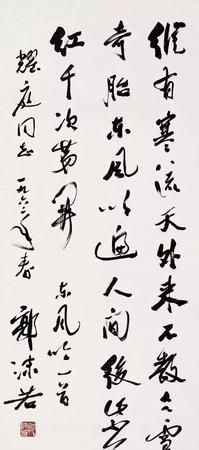 縱有寒流天外来不教冰雪
奇胎东风吹遍人间後紫万
红千次第开 东风吟一首
耀庭同志 一九六三年春 郭沫若